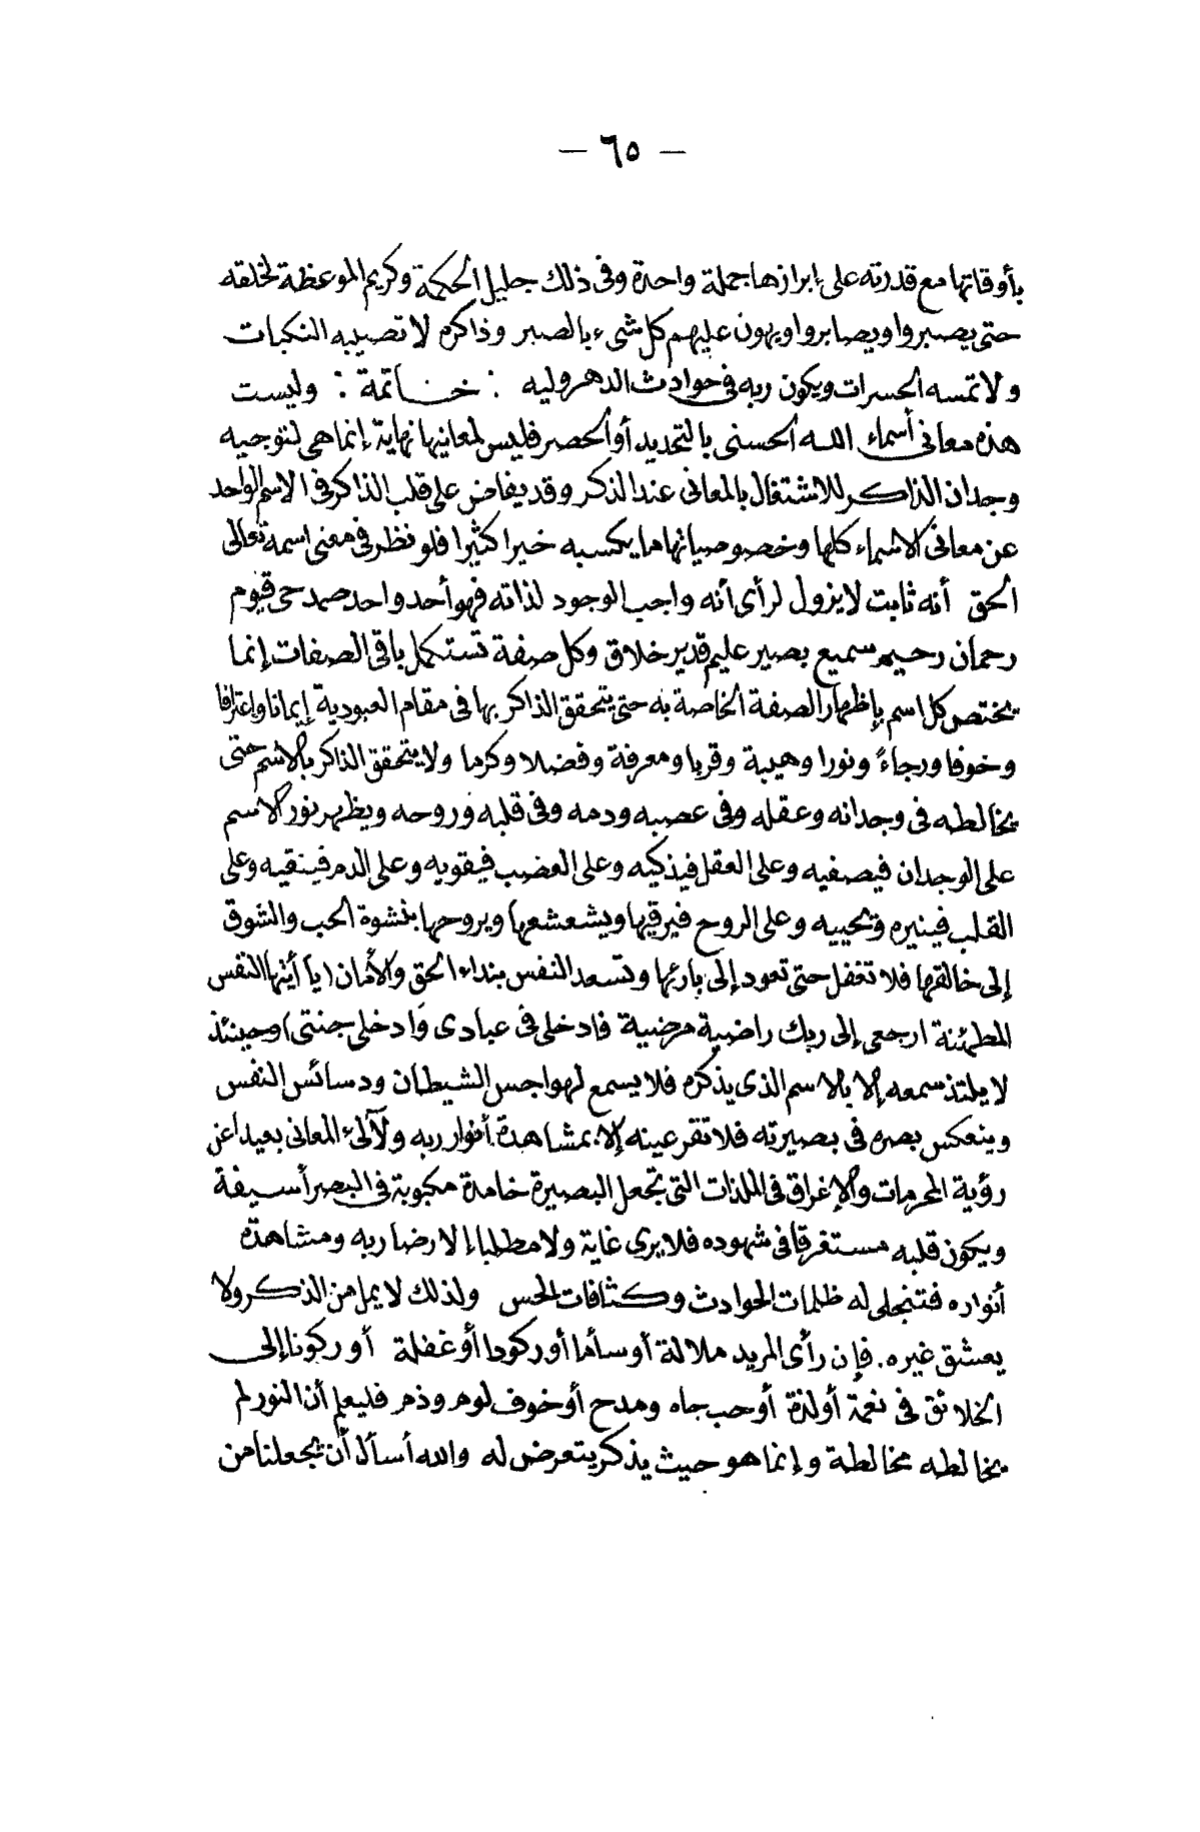 — ٦٥ —
بأوقاتها مع قدرته على إبرازها جملة واحدة وفى ذلك جليل الحكمة وكريم الموعظة لخلقه
حتى يصبروا ويصابروا ويهون عليهم كل شىء بالصبر وذاكره لا تصيبه النكبات
ولا تمسه الحسرات ويكون ربه فى حوادث الدهر وليه : خاتمة : وليست
هذه معانى أسماء الله الحسنى بالتحديد أو الحصر فليس لمعانيها نهاية إنما هى لتوجيه
وجدان الذاكر للاشتغال بالمعانى عند الذكر وقد يفاض على قلب الذاكر فى الاسم الواحد
عن معانى الأسماء كلها وخصوصياتها ما يكسبه خيرا كثيرا فلو نظر فى معنى اسمه تعالى
الحق أنه ثابت لا يزول لرأى أنه واجب الوجود لذاته فهو أحد واحد صمد حى قيوم
رحمان رحيم سميع بصير عليم قدير خلاق وكل صفة تستكمل باقى الصفات إنما
يختص كل اسم بإظهار الصفة الخاصة به حتى يتحقق الذاكر بها فى مقام العبودية إيمانا واعترافا
وخوفا ورجاءً ونورا وهيبة وقربا ومعرفة وفضلا وكرما ولا يتحقق الذاكر بالاسم حتى
يخالطه فى وجدانه وعقله وفى عصبه ودمه وفى قلبه وروحه ويظهر نور الاسم
على الوجدان فيصفيه وعلى العقل فيذكيه وعلى العضب فيقويه وعلى الدم فينقيه وعلى
القلب فينيره ويحييه وعلى الروح فيرقيها ويشعشعها ويروحها بنشوة الحب والشوق
إلى خالقها فلا تغفل حتى تعود إلى بارئها وتسعد النفس بنداء الحق والأمان (يا أيتها النفس
المطمئنة ارجعى إلى ربك راضية مرضية فادخلى فى عبادى وَادخلى جنتى) وحينئذ
لا يلتذ سمعه إلا بالاسم الذى يذكره فلا يسمع لهواجس الشيطان ودسائس النفس
وينعكس بصره فى بصيرته فلا تقر عينه إلا بمشاهدة أنوار ربه ولآلىء المعانى بعيدا عن
رؤية المحرمات والإغراق فى الملذات التى تجعل البصيرة خامدة مكبوتة فى البصر أسيفة
ويكون قلبه مستغرقا فى شهوده فلا يرى غاية ولا مطلبا إلا رضا ربه ومشاهدة
أنواره فتنجلى له ظلمات الحوادث وكثافات الحس ولذلك لا يمل من الذكر ولا
يعشق غيره. فإن رأى المريد ملالة أو سأما أو ركودا أو غفلة أو ركونا إلى
الخلائق فى نعمة أو لذة أو حب جاه ومدح أو خوف لوم وذم فليعلم أن النور لم
يخالطه مخالطة وإنما هو حيث يذكر يتعرض له والله أسأل أن يجعلنا من